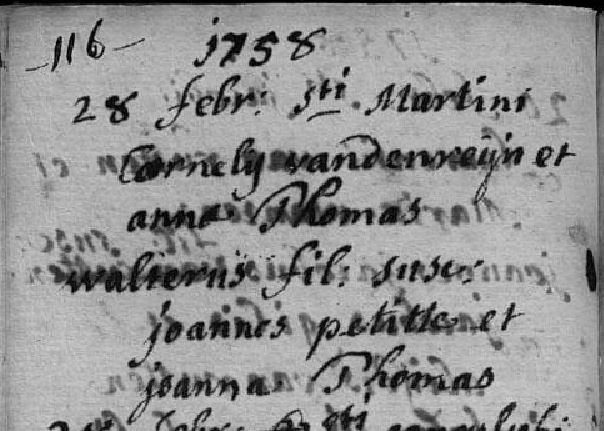 -116- 1758
28 febr: sti. Martini
Cornely vandenreijn et
anna Thomas
walterus fil: susc:
joannes petitte et
joanna Thomas
febr: sti